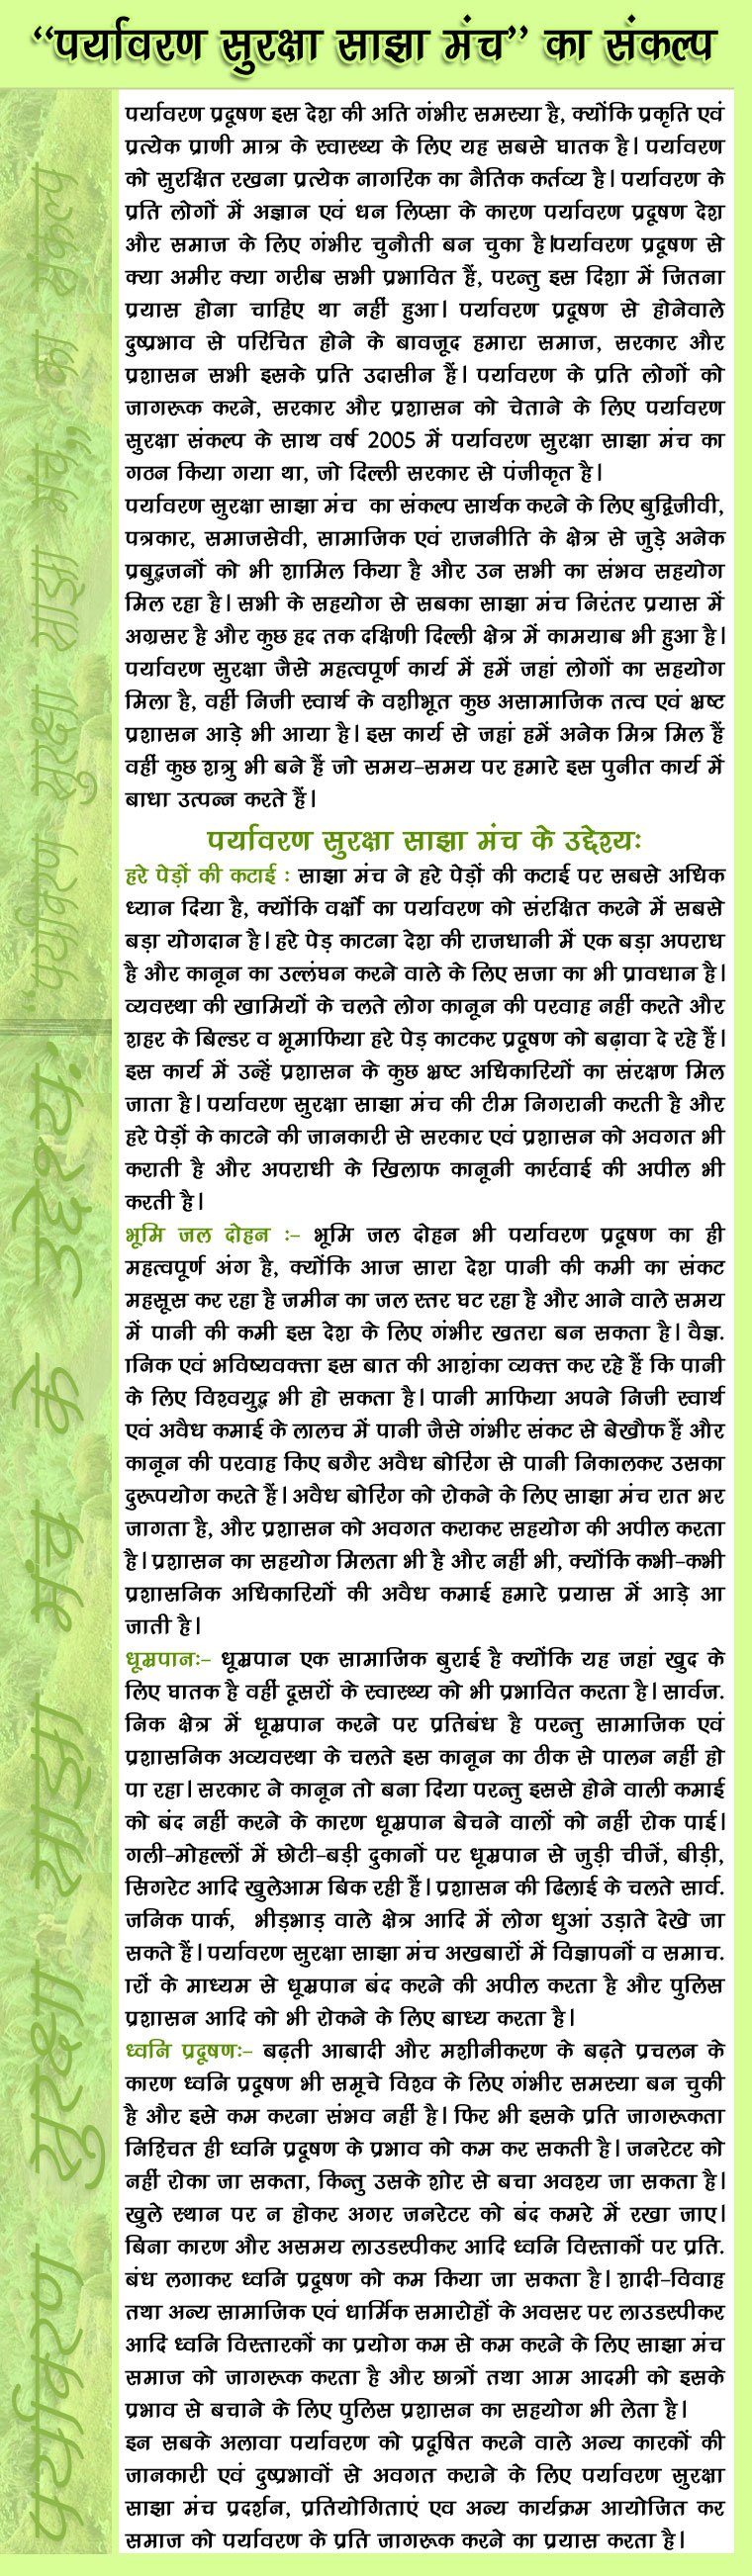 “पर्यावरण सुरक्षा साझा मंच” का संकल्प
पर्यावरण प्रदूषण इस देश की अति गंभीर समस्या है, क्योंकि प्रकृति एवं
प्रत्येक प्राणी मात्र के स्वास्थ्य के लिए यह सबसे घातक है। पर्यावरण
को सुरक्षित रखना प्रत्येक नागरिक का नैतिक कर्तव्य है। पर्यावरण के
प्रति लोगों में अज्ञान एवं धन लिप्सा के कारण पर्यावरण प्रदूषण देश
और समाज के लिए गंभीर चुनौती बन चुका है।पर्यावरण प्रदूषण से
क्या अमीर क्या गरीब सभी प्रभावित हैं, परन्तु इस दिशा में जितना
प्रयास होना चाहिए था नहीं हुआ। पर्यावरण प्रदूषण से होनेवाले
दुष्प्रभाव से परिचित होने के बावजूद हमारा समाज, सरकार और
प्रशासन सभी इसके प्रति उदासीन हैं। पर्यावरण के प्रति लोगों को
जागरूक करने, सरकार और प्रशासन को चेताने के लिए पर्यावरण
सुरक्षा संकल्प के साथ वर्ष 2005 में पर्यावरण सुरक्षा साझा मंच का
गठन किया गया था, जो दिल्ली सरकार से पंजीकृत है।
पर्यावरण सुरक्षा साझा मंच का संकल्प सार्थक करने के लिए बुद्विजीवी,
पत्रकार, समाजसेवी, सामाजिक एवं राजनीति के क्षेत्र से जुड़े अनेक
प्रबुद्धजनों को भी शामिल किया है और उन सभी का संभव सहयोग
मिल रहा है। सभी के सहयोग से सबका साझा मंच निरंतर प्रयास में
अग्रसर है और कुछ हद तक दक्षिणी दिल्ली क्षेत्र में कामयाब भी हुआ है।
पर्यावरण सुरक्षा जैसे महत्वपूर्ण कार्य में हमें जहां लोगों का सहयोग
मिला है, वहीं निजी स्वार्थ के वशीभूत कुछ असामाजिक तत्व एवं भ्रष्ट
प्रशासन आड़े भी आया है। इस कार्य से जहां हमें अनेक मित्र मिल हैं
वहीं कुछ शत्रु भी बने हैं जो समय-समय पर हमारे इस पुनीत कार्य में
बाधा उत्पन्न करते हैं।
पर्यावरण सुरक्षा साझा मंच के उद्देश्यः
हरे पेड़ों की कटाई : साझा मंच ने हरे पेड़ों की कटाई पर सबसे अधिक
ध्यान दिया है, क्योंकि वर्क्षो का पर्यावरण को संरक्षित करने में सबसे
बड़ा योगदान है। हरे पेड़ काटना देश की राजधानी में एक बड़ा अपराध
है और कानून का उल्लंघन करने वाले के लिए सजा का भी प्रावधान है।
व्यवस्था की खामियों के चलते लोग कानून की परवाह नहीं करते और
शहर के बिल्डर व भूमाफिया हरे पेड़ काटकर प्रदूषण को बढ़ावा दे रहे हैं।
इस कार्य में उन्हें प्रशासन के कुछ भ्रष्ट अधिकारियों का संरक्षण मिल
जाता है। पर्यावरण सुरक्षा साझा मंच की टीम निगरानी करती है और
हरे पेड़ों के काटने की जानकारी से सरकार एवं प्रशासन को अवगत भी
कराती है और अपराधी के खिलाफ कानूनी कार्रवाई की अपील भी
करती है।
भूमि जल दोहन :- भूमि जल दोहन भी पर्यावरण प्रदूषण का ही
महत्वपूर्ण अंग है, क्योंकि आज सारा देश पानी की कमी का संकट
महसूस कर रहा है जमीन का जल स्तर घट रहा है और आने वाले समय
में पानी की कमी इस देश के लिए गंभीर खतरा बन सकता है। वैज्ञ.
ानिक एवं भविष्यवक्ता इस बात की आशंका व्यक्त कर रहे हैं कि पानी
के लिए विश्वयुद्ध भी हो सकता है। पानी माफिया अपने निजी स्वार्थ
एवं अवैध कमाई के लालच में पानी जैसे गंभीर संकट से बेखौफ हैं और
कानून की परवाह किए बगैर अवैध बोरिंग से पानी निकालकर उसका
दुरूपयोग करते हैं। अवैध बोरिंग को रोकने के लिए साझा मंच रात भर
जागता है, और प्रशासन को अवगत कराकर सहयोग की अपील करता
है। प्रशासन का सहयोग मिलता भी है और नहीं भी, क्योंकि कभी-कभी
प्रशासनिक अधिकारियों की अवैध कमाई हमारे प्रयास में आड़े आ
जाती है।
धूम्रपानः- धूम्रपान एक सामाजिक बुराई है क्योंकि यह जहां खुद के
लिए घातक है वहीं दूसरों के स्वास्थ्य को भी प्रभावित करता है। सार्वज.
निक क्षेत्र में धूम्रपान करने पर प्रतिबंध है परन्तु सामाजिक एवं
प्रशासनिक अव्यवस्था के चलते इस कानून का ठीक से पालन नहीं हो
पा रहा। सरकार ने कानून तो बना दिया परन्तु इससे होने वाली कमाई
को बंद नहीं करने के कारण धूम्रपान बेचने वालों को नहीं रोक पाई।
गली-मोहल्लों में छोटी-बड़ी दुकानों पर धूम्रपान से जुड़ी चीजें, बीड़ी,
सिगरेट आदि खुलेआम बिक रही हैं। प्रशासन की ढिलाई के चलते सार्व.
जनिक पार्क, भीड़भाड़ वाले क्षेत्र आदि में लोग धुआं उड़ाते देखे जा
सकते हैं। पर्यावरण सुरक्षा साझा मंच अखबारों में विज्ञापनों व समाच.
ारों के माध्यम से धूम्रपान बंद करने की अपील करता है और पुलिस
प्रशासन आदि को भी रोकने के लिए बाध्य करता है।
ध्वनि प्रदूषणः- बढ़ती आबादी और मशीनीकरण के बढ़ते प्रचलन के
कारण ध्वनि प्रदूषण भी समूचे विश्व के लिए गंभीर समस्या बन चुकी
है और इसे कम करना संभव नहीं है। फिर भी इसके प्रति जागरूकता
निश्चित ही ध्वनि प्रदूषण के प्रभाव को कम कर सकती है। जनरेटर को
नहीं रोका जा सकता, किन्तु उसके शोर से बचा अवश्य जा सकता है।
खुले स्थान पर न होकर अगर जनरेटर को बंद कमरे में रखा जाए।
बिना कारण और असमय लाउडस्पीकर आदि ध्वनि विस्ताकों पर प्रति.
बंध लगाकर ध्वनि प्रदूषण को कम किया जा सकता है। शादी-विवाह
तथा अन्य सामाजिक एवं धार्मिक समारोहों के अवसर पर लाउडस्पीकर
आदि ध्वनि विस्तारकों का प्रयोग कम से कम करने के लिए साझा मंच
समाज को जागरूक करता है और छात्रों तथा आम आदमी को इसके
प्रभाव से बचाने के लिए पुलिस प्रशासन का सहयोग भी लेता है।
इन सबके अलावा पर्यावरण को प्रदूषित करने वाले अन्य कारकों की
जानकारी एवं दुष्प्रभावों से अवगत कराने के लिए पर्यावरण सुरक्षा
साझा मंच प्रदर्शन, प्रतियोगिताएं एव अन्य कार्यक्रम आयोजित कर
समाज को पर्यावरण के प्रति जागरूक करने का प्रयास करता है।
“पर्यावरण सुरक्षा साझा मंच” का संकल्प
पर्यावरण सुरक्षा साझा मंच के उद्देश्यः